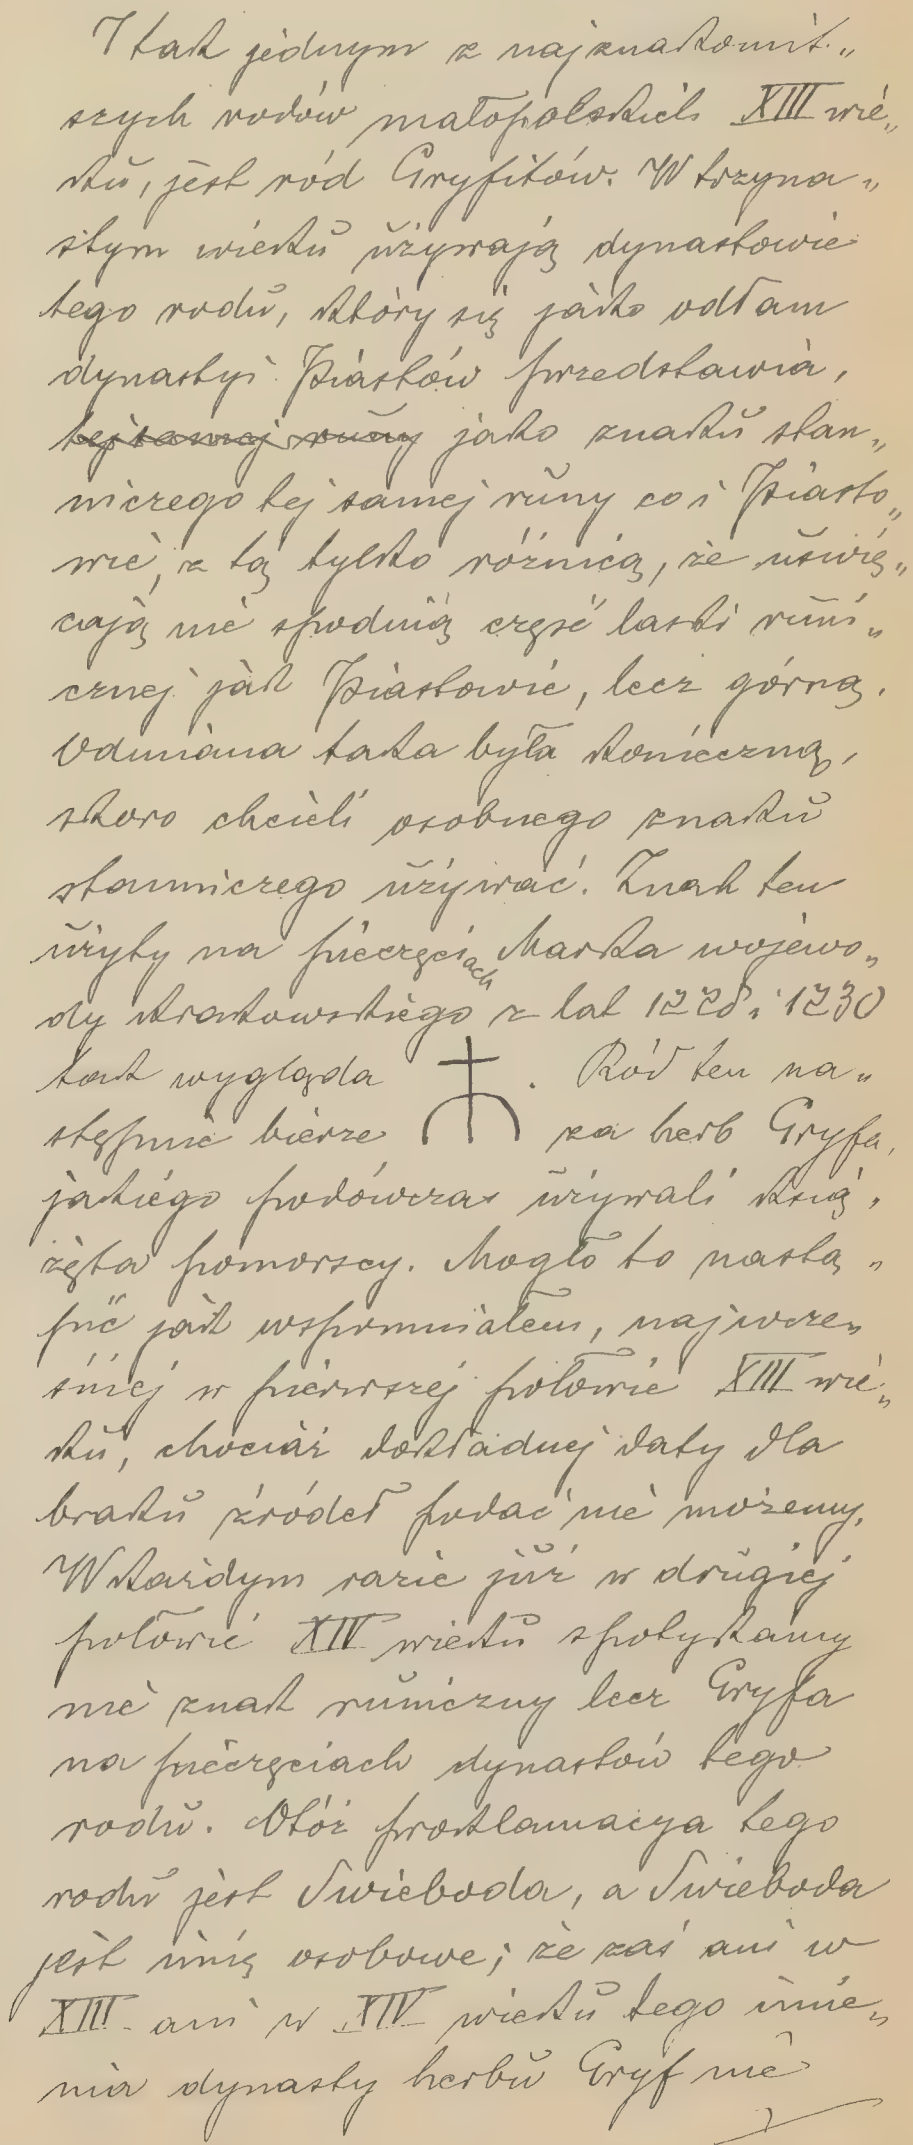 I tak jednym z najznakomit„
szych rodów małopolskich XIII wie„
ku, jest ród Gryfitów. W trzyna„
stym wieku używają dynastowie
tego rodu, który się jako odłam
dynastyi Piastów przedstawia,
tej samej runy jako znaku stan„
niczego tej samej runy co i Piasto„
wie, z tą tylko różnicą, że uświę„
cają nie spodnią część laski runi„
cznej jak Piastowie, lecz górną.
Odmiana taka była konieczną,
skoro chcieli osobnego znaku
stanniczego używać. Znak ten
użyty na pieczęciach Marka wojewo„
dy krakowskiego z lat 1228 i 1230
tak wygląda . Ród ten na„
stępnie bierze za herb Gryfa,
jakiego podówczas używali ksią„
żęta pomorscy. Mogło to nastą„
pić jak wspomniałem, najwcze„
śniej w pierwszej połowie XIII wie„
ku, chociaż dokładnej daty dla
braku źródeł podać nie możemy.
W każdym razie już w drugiej
połowie XIV wieku spotykamy
nie znak runiczny lecz Gryfa
na pieczęciach dynastów tego
rodu. Otóż proklamacya tego
rodu jest Świeboda, a Świeboda
jest imię osobowe; że zaś ani w
XIII ani w XIV wieku tego imie„
nia dynasty herbu Gryf nie